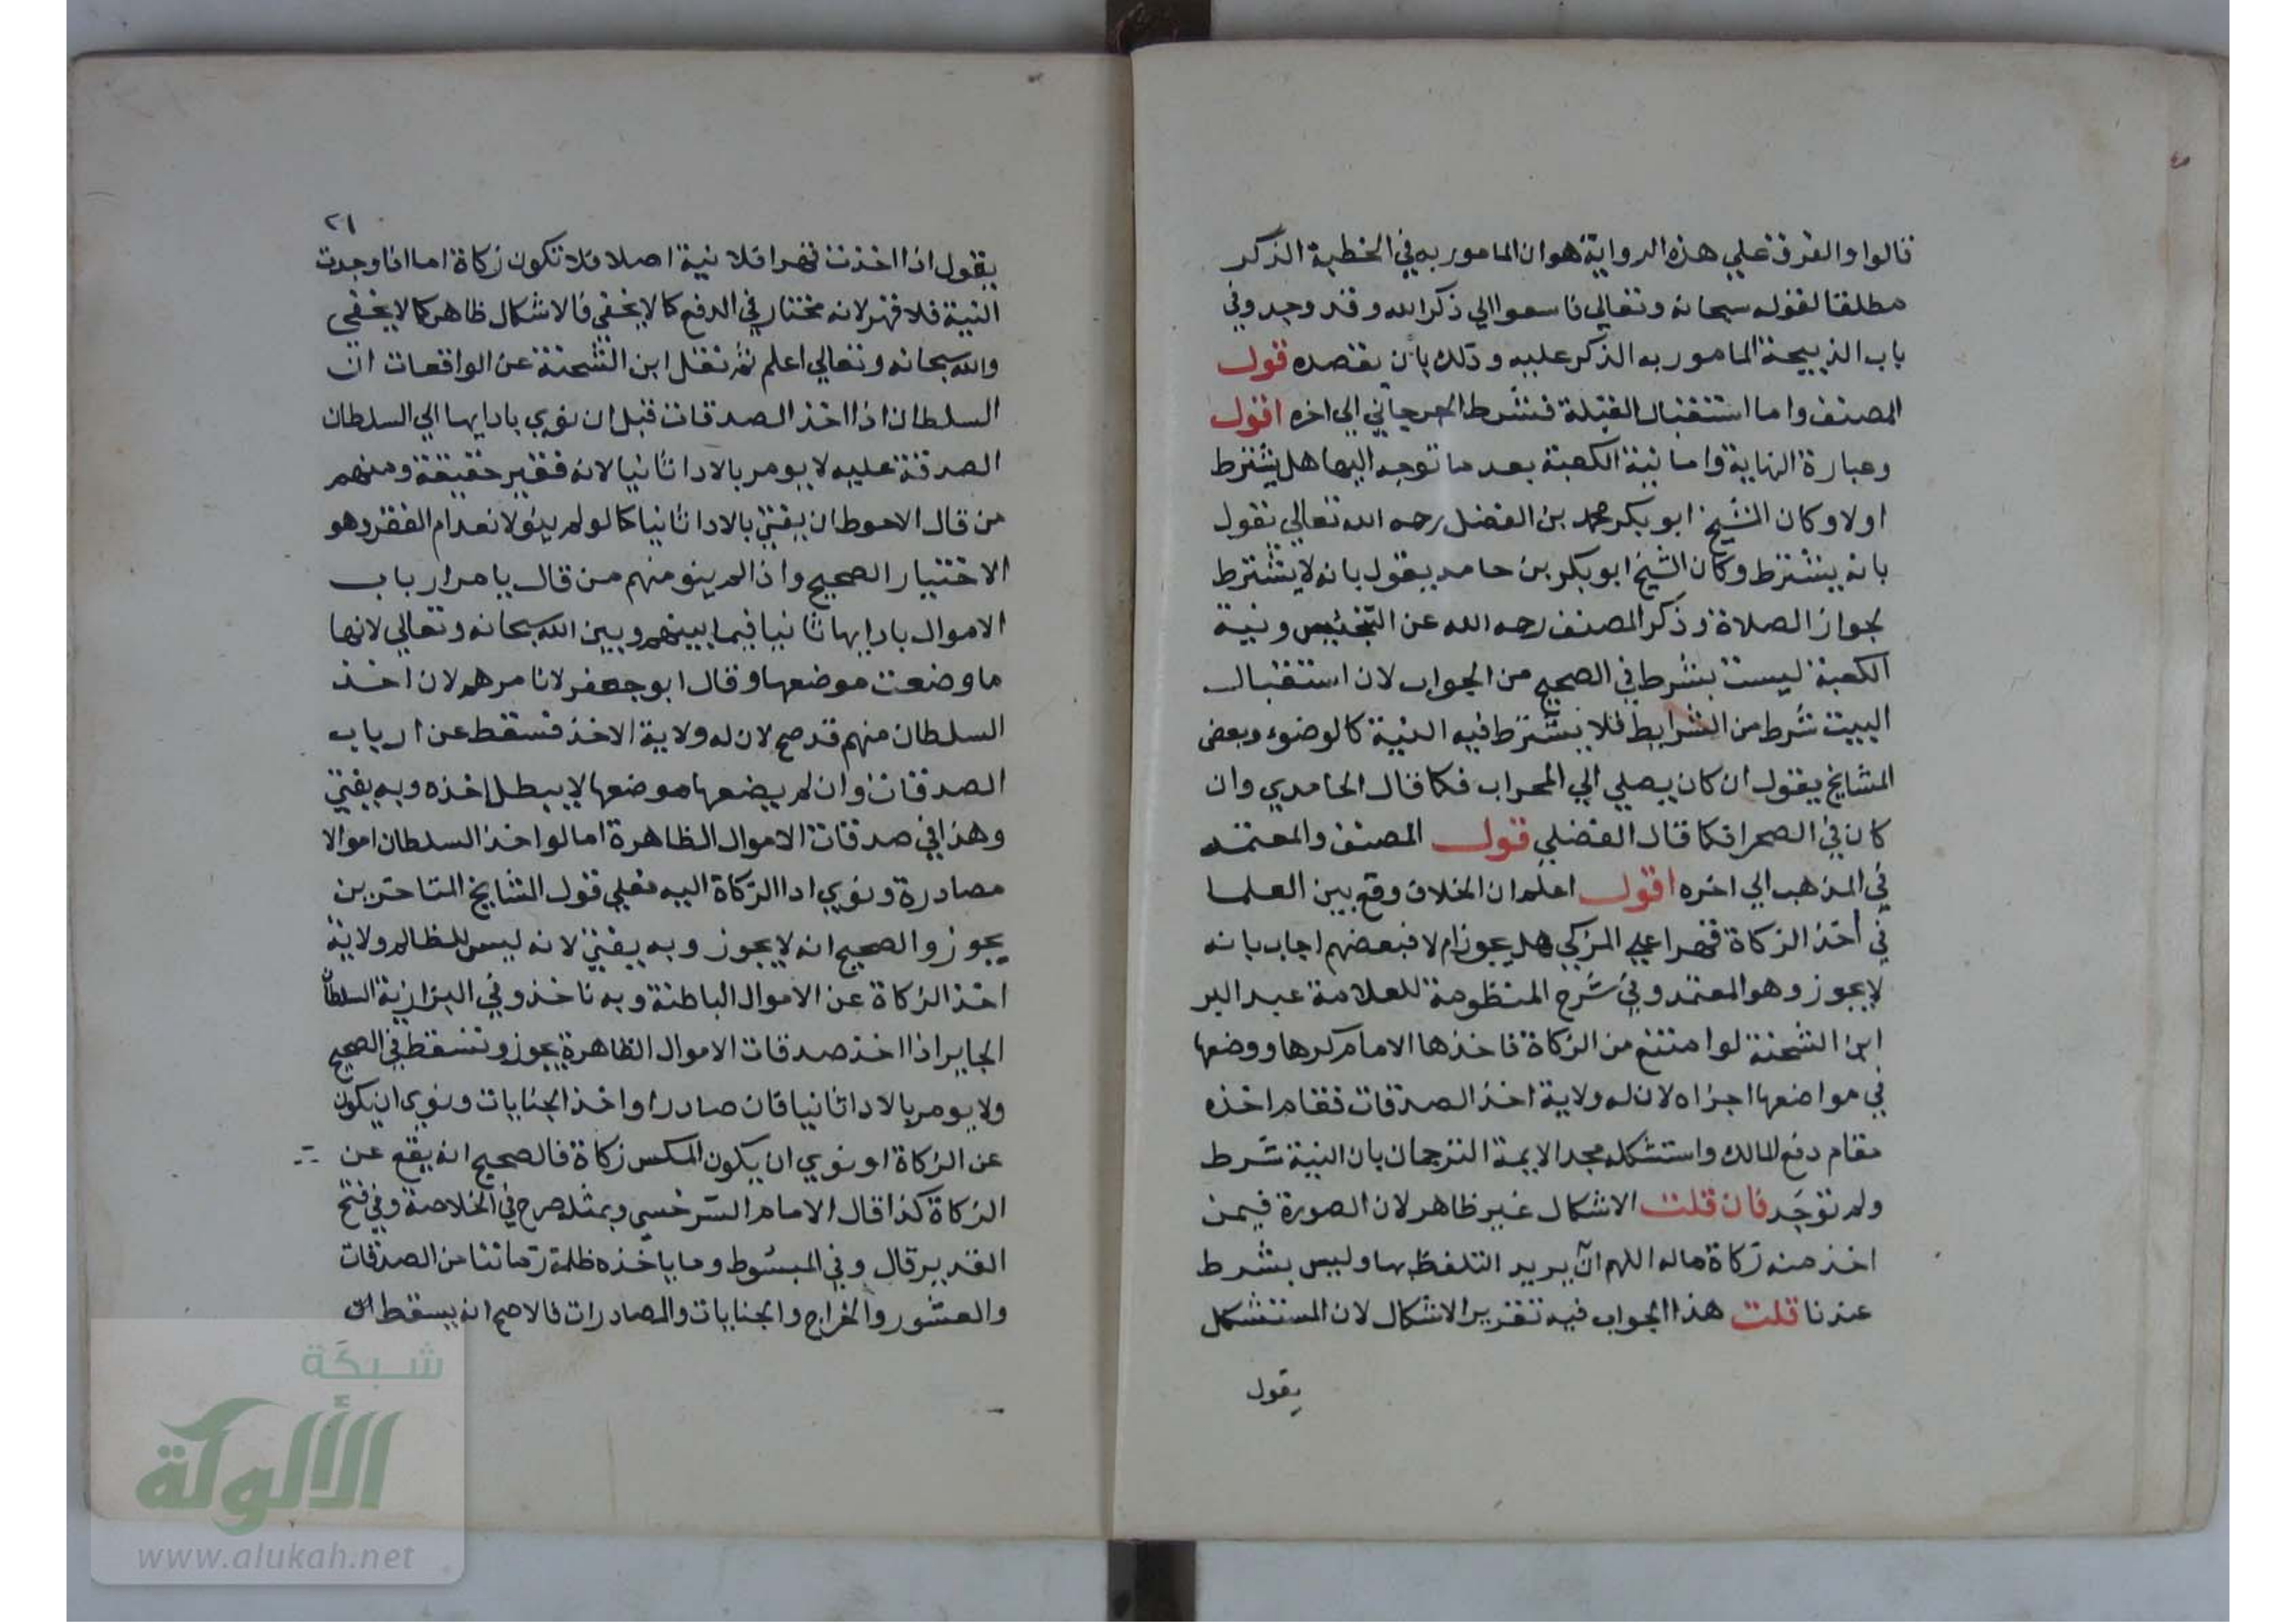 قالوا والفرق علي هذه الرواية هو ان المامور به في الخطبة الذكر
مطلقا لقوله سبحانه وتعالي فاسعوا الي ذكر الله وقد وجد وفي
باب الذبيحة المامور به الذكر عليه وذلك بان يقصده قول
المصنف واما استقبال القبلة فشرط الجرجاني الي اخره اقول
وعبارة النهاية واما نية الكعبة بعد ما توجه اليها هل يشترط
اولا وكان الشيخ ابو بكر محمد بن الفضل رحمه الله تعالي يقول
بانه يشترط وكان الشيخ ابو بكر بن حامد يقول بانه لا يشترط
بجواز الصلاة وذكر المصنف رحمه الله عن التجنيس ونية
الكعبة ليست بشرط في الصحيح من الجواب لان استقبال
البيت شرط من الشرايط فلا يشترط فيه النية كالوضوء وبعض
المشايخ يقول ان كان يصلي الي المحراب فكما قال الحامدي وان
كان في الصحرا فكما قال الفضلي قول المصنف والمعتمد
في المذهب الي اخره اقول اعلم ان الخلاف وقع بين العلما
في أخذ الزكاة قهرا علي المزكي هل يجوز ام لا فبعضهم اجاب بانه
لا يجوز وهو المعتمد وفي شرح المنظومة للعلامة عبد البر
ابن الشحنة لو امتنع من الزكاة فاخذها الامام كرها ووضعها
في مواضعها اجزاه لان له ولاية اخذ الصدقات فقام اخذه
مقام دفع المالك واستشكله مجد الايمة الترجمان بان النية شرط
ولم توجد فان قلت الاشكال غير ظاهر لان الصورة فيمن
اخذ منه زكاة ماله اللهم ان يريد التلفظ بها وليس بشرط
عندنا قلت هذا الجواب فيه تقرير الاشكال لان المستشكل
يقول
٢١
يقول اذا اخذت قهرا فلا نية اصلا فلا تكون زكاة اما اذا وجدت
النية فلا قهر لانه مختار في الدفع كما لا يخفي فالاشكال ظاهر كما لا يخفي
والله سبحانه وتعالي اعلم ثم نقل ابن الشحنة عن الواقعات ان
السلطان اذا اخذ الصدقات قبل ان نوي بادايها الي السلطان
الصدقة عليه لا يومر بالادا ثانيا لانه فقير حقيقة ومنهم
من قال الاحوط ان يفتي بالادا ثانيا كما لو لم ينو لانعدام الفقر وهو
الاختيار الصحيح واذا لم ينو منهم من قال يامر ارباب
الاموال بادايها ثانيا فيما بينهم وبين الله سبحانه وتعالي لانها
ما وضعت موضعها وقال ابو جعفر لا نامرهم لان اخذ
السلطان منهم قد صح لان له ولاية الاخذ فسقط عن ارباب
الصدقات وان لم يضعها موضعها لا يبطل اخذه وبه يفتي
وهذا في صدقات الاموال الظاهرة اما لو اخذ السلطان اموالا
مصادرة ونوي ادا الزكاة اليه فعلي قول المشايخ المتاخرين
يجوز والصحيح انه لا يجوز وبه يفتي لانه ليس للظالم ولاية
اخذ الزكاة عن الاموال الباطنة وبه ناخذ وفي البزازية السلطان
الجاير اذا اخذ صدقات الاموال الظاهرة يجوز وتسقط في الصحيح
ولا يومر بالادا ثانيا فان صادرا واخذ الجنايات ونوي ان يكون
عن الزكاة او نوي ان يكون المكس زكاة فالصحيح انه يقع عن
الزكاة كذا قال الامام السرخسي وبمثله صرح في الخلاصة وفي فتح
القدير قال وفي المبسوط وما ياخذه ظلمة زماننا من الصدقات
والعشور والخراج والجنايات والمصادرات فالاصح انه يسقط
شبكة
الألوكة
www.alukah.net